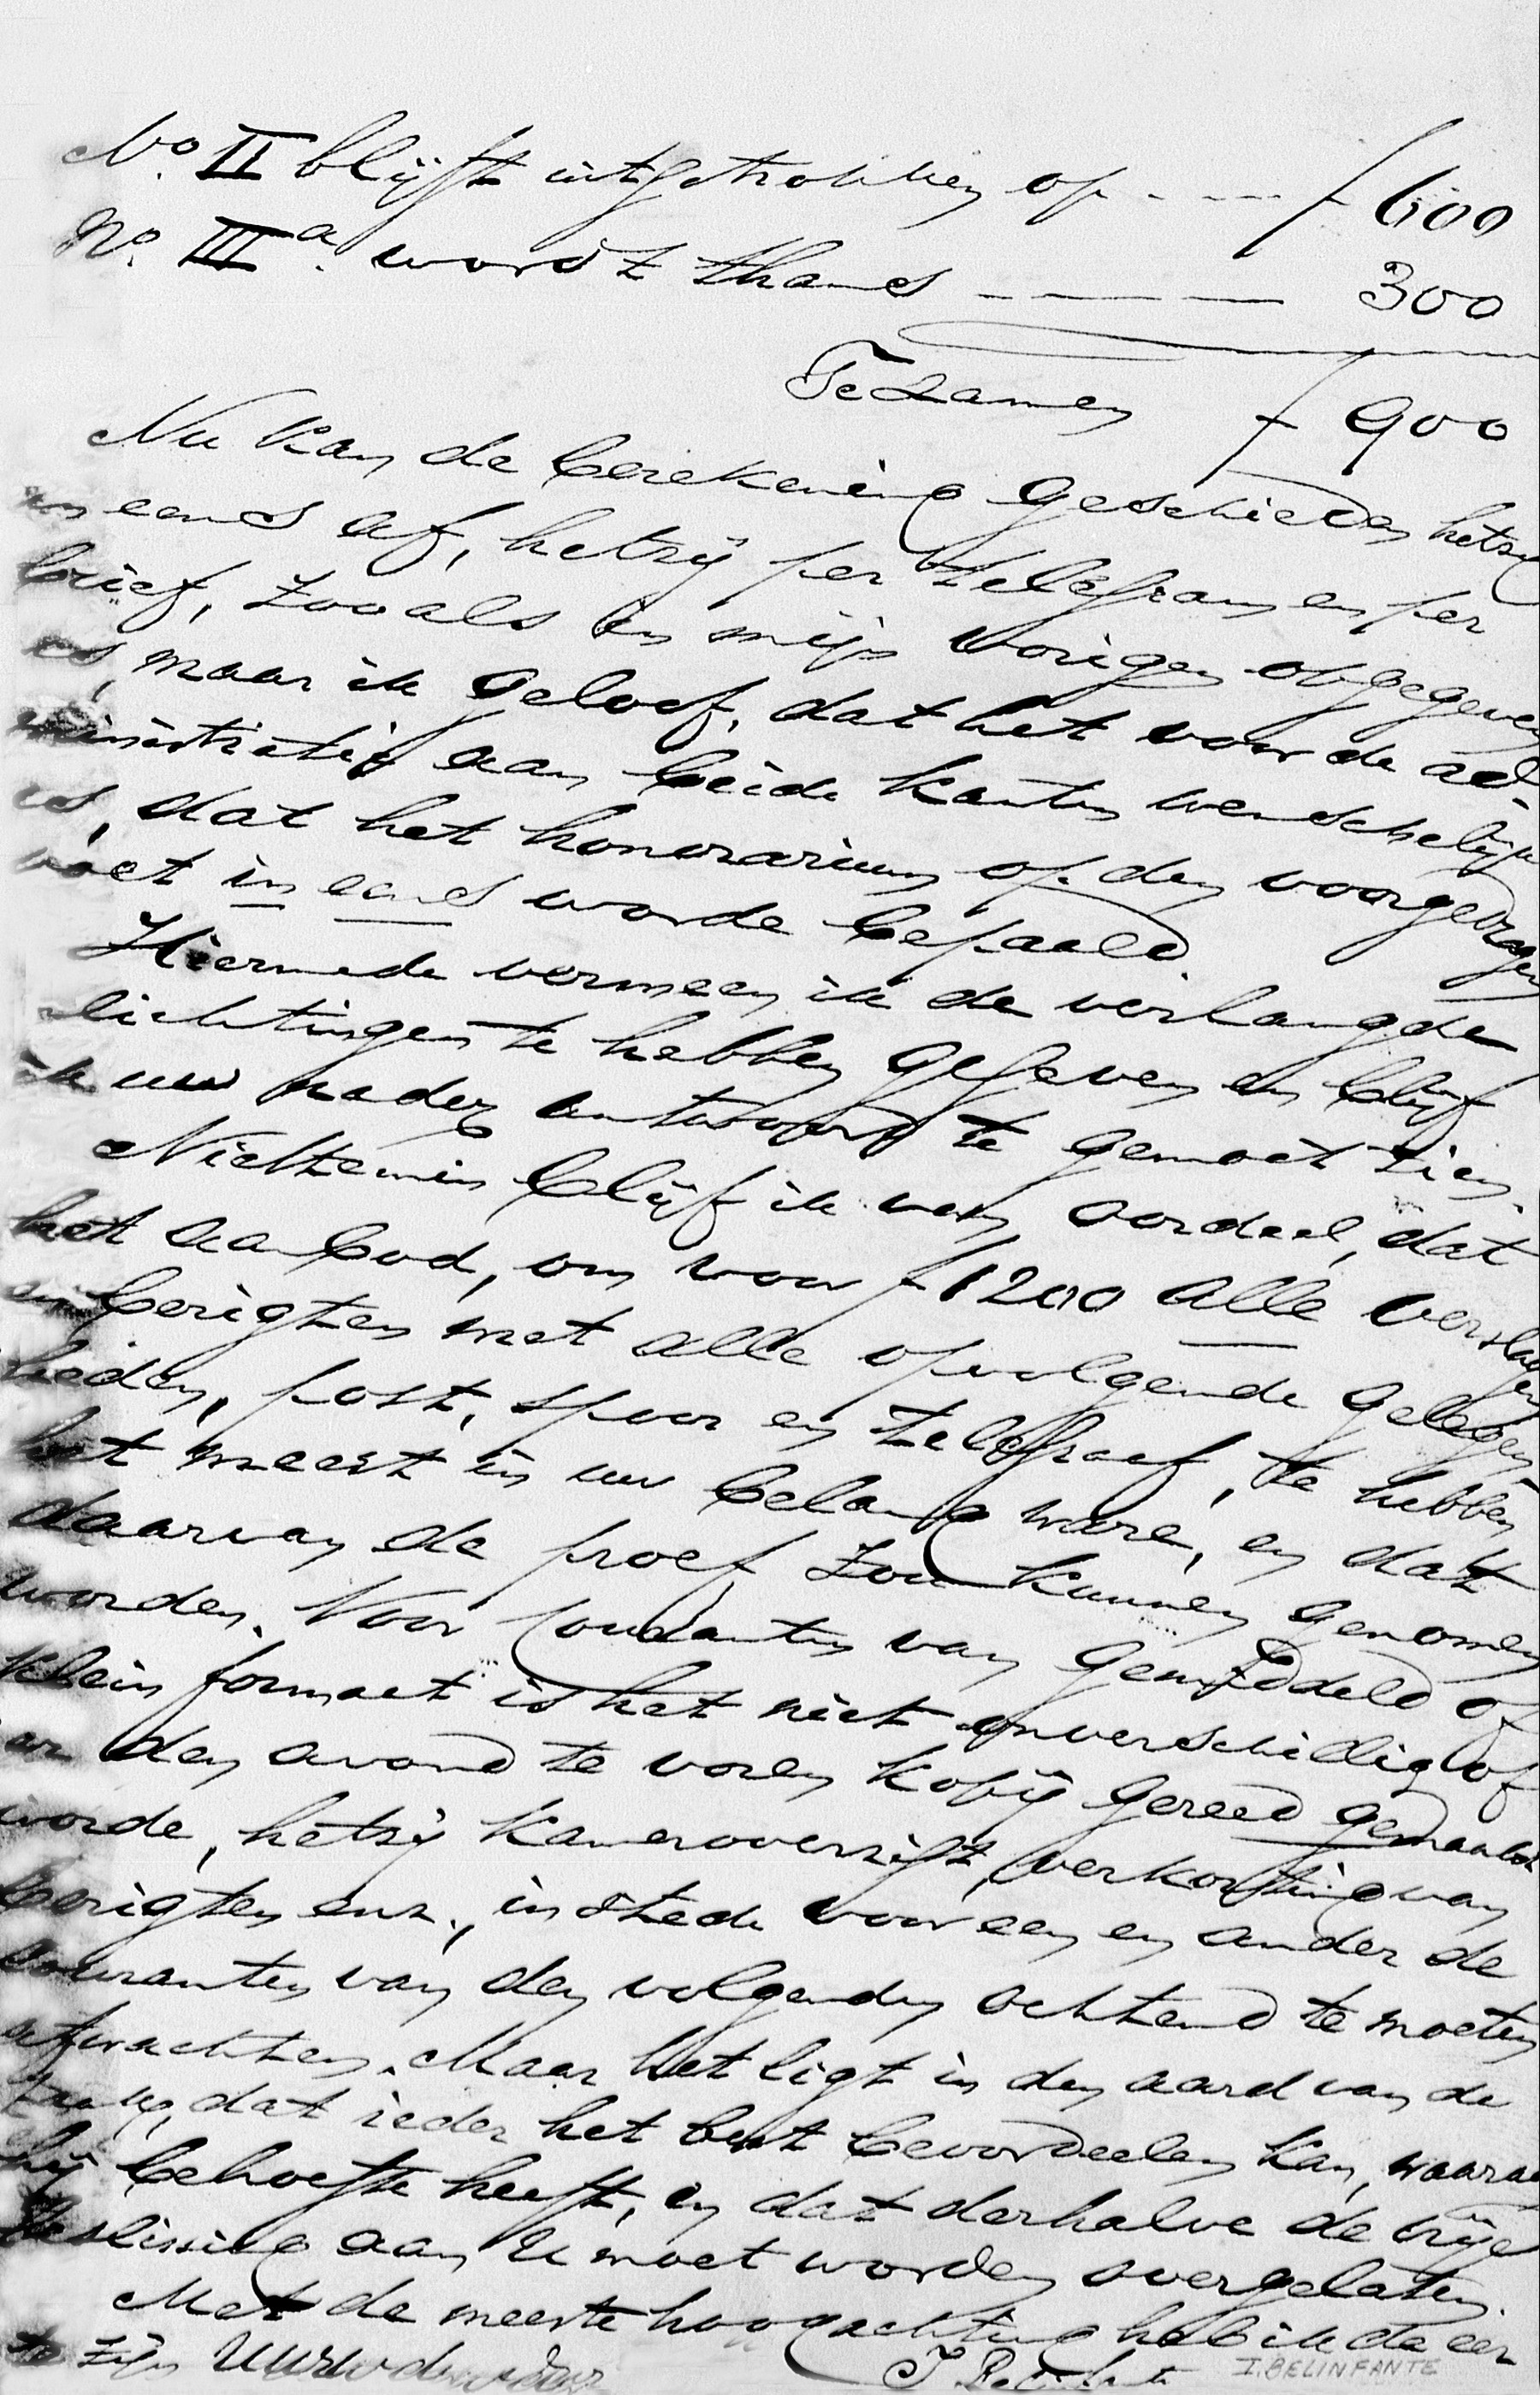 No. II blijft uitgetrokken op - - - - f 600
No. IIIa. wordt thans - - - - 300
Te zamen f 900
Nu kan de berekening geschieden hetzij
in eens af, hetzij per telegram en per
brief, zooals in mijn vorigen opgegeven
is, maar ik geloof, dat het voor de ad-
ministratie aan beide kanten wenschelijk
is, dat het honorarium op den voorgedragen
voet in eens worde bepaald.
Hiermede vermeen ik de verlangde
lichtingen te hebben gegeven en blijf
ik uw nader antwoord te gemoet zien.
Niettemin blijf ik van oordeel, dat
het aanbod, om voor f 1200 alle verslagen
en berigten met alle opvolgende gelegen-
heden, post, spoor en telegraaf, te hebben
het meest in uw belang ware, en dat
daarvan de proef zou kunnen genomen
worden. Voor couranten van gemiddeld of
klein formaat is het niet onverschillig of
er den avond te voren kopij gereed gemaakt
worde, hetzij kameroverzigt, verkorting van
berigten enz., instede voor een en ander de
couranten van den volgenden ochtend te moeten
afwachten. Maar het ligt in den aard van de
zaak, dat ieder het best beoordeelen kan, waaraan
hij behoefte heeft, en dat derhalve de vrije
beslissing aan U moet worden overgelaten.
Met de meeste hoogachting heb ik de eer
te zijn Uw dw dienaar
I. Belinfante I. BELINFANTE